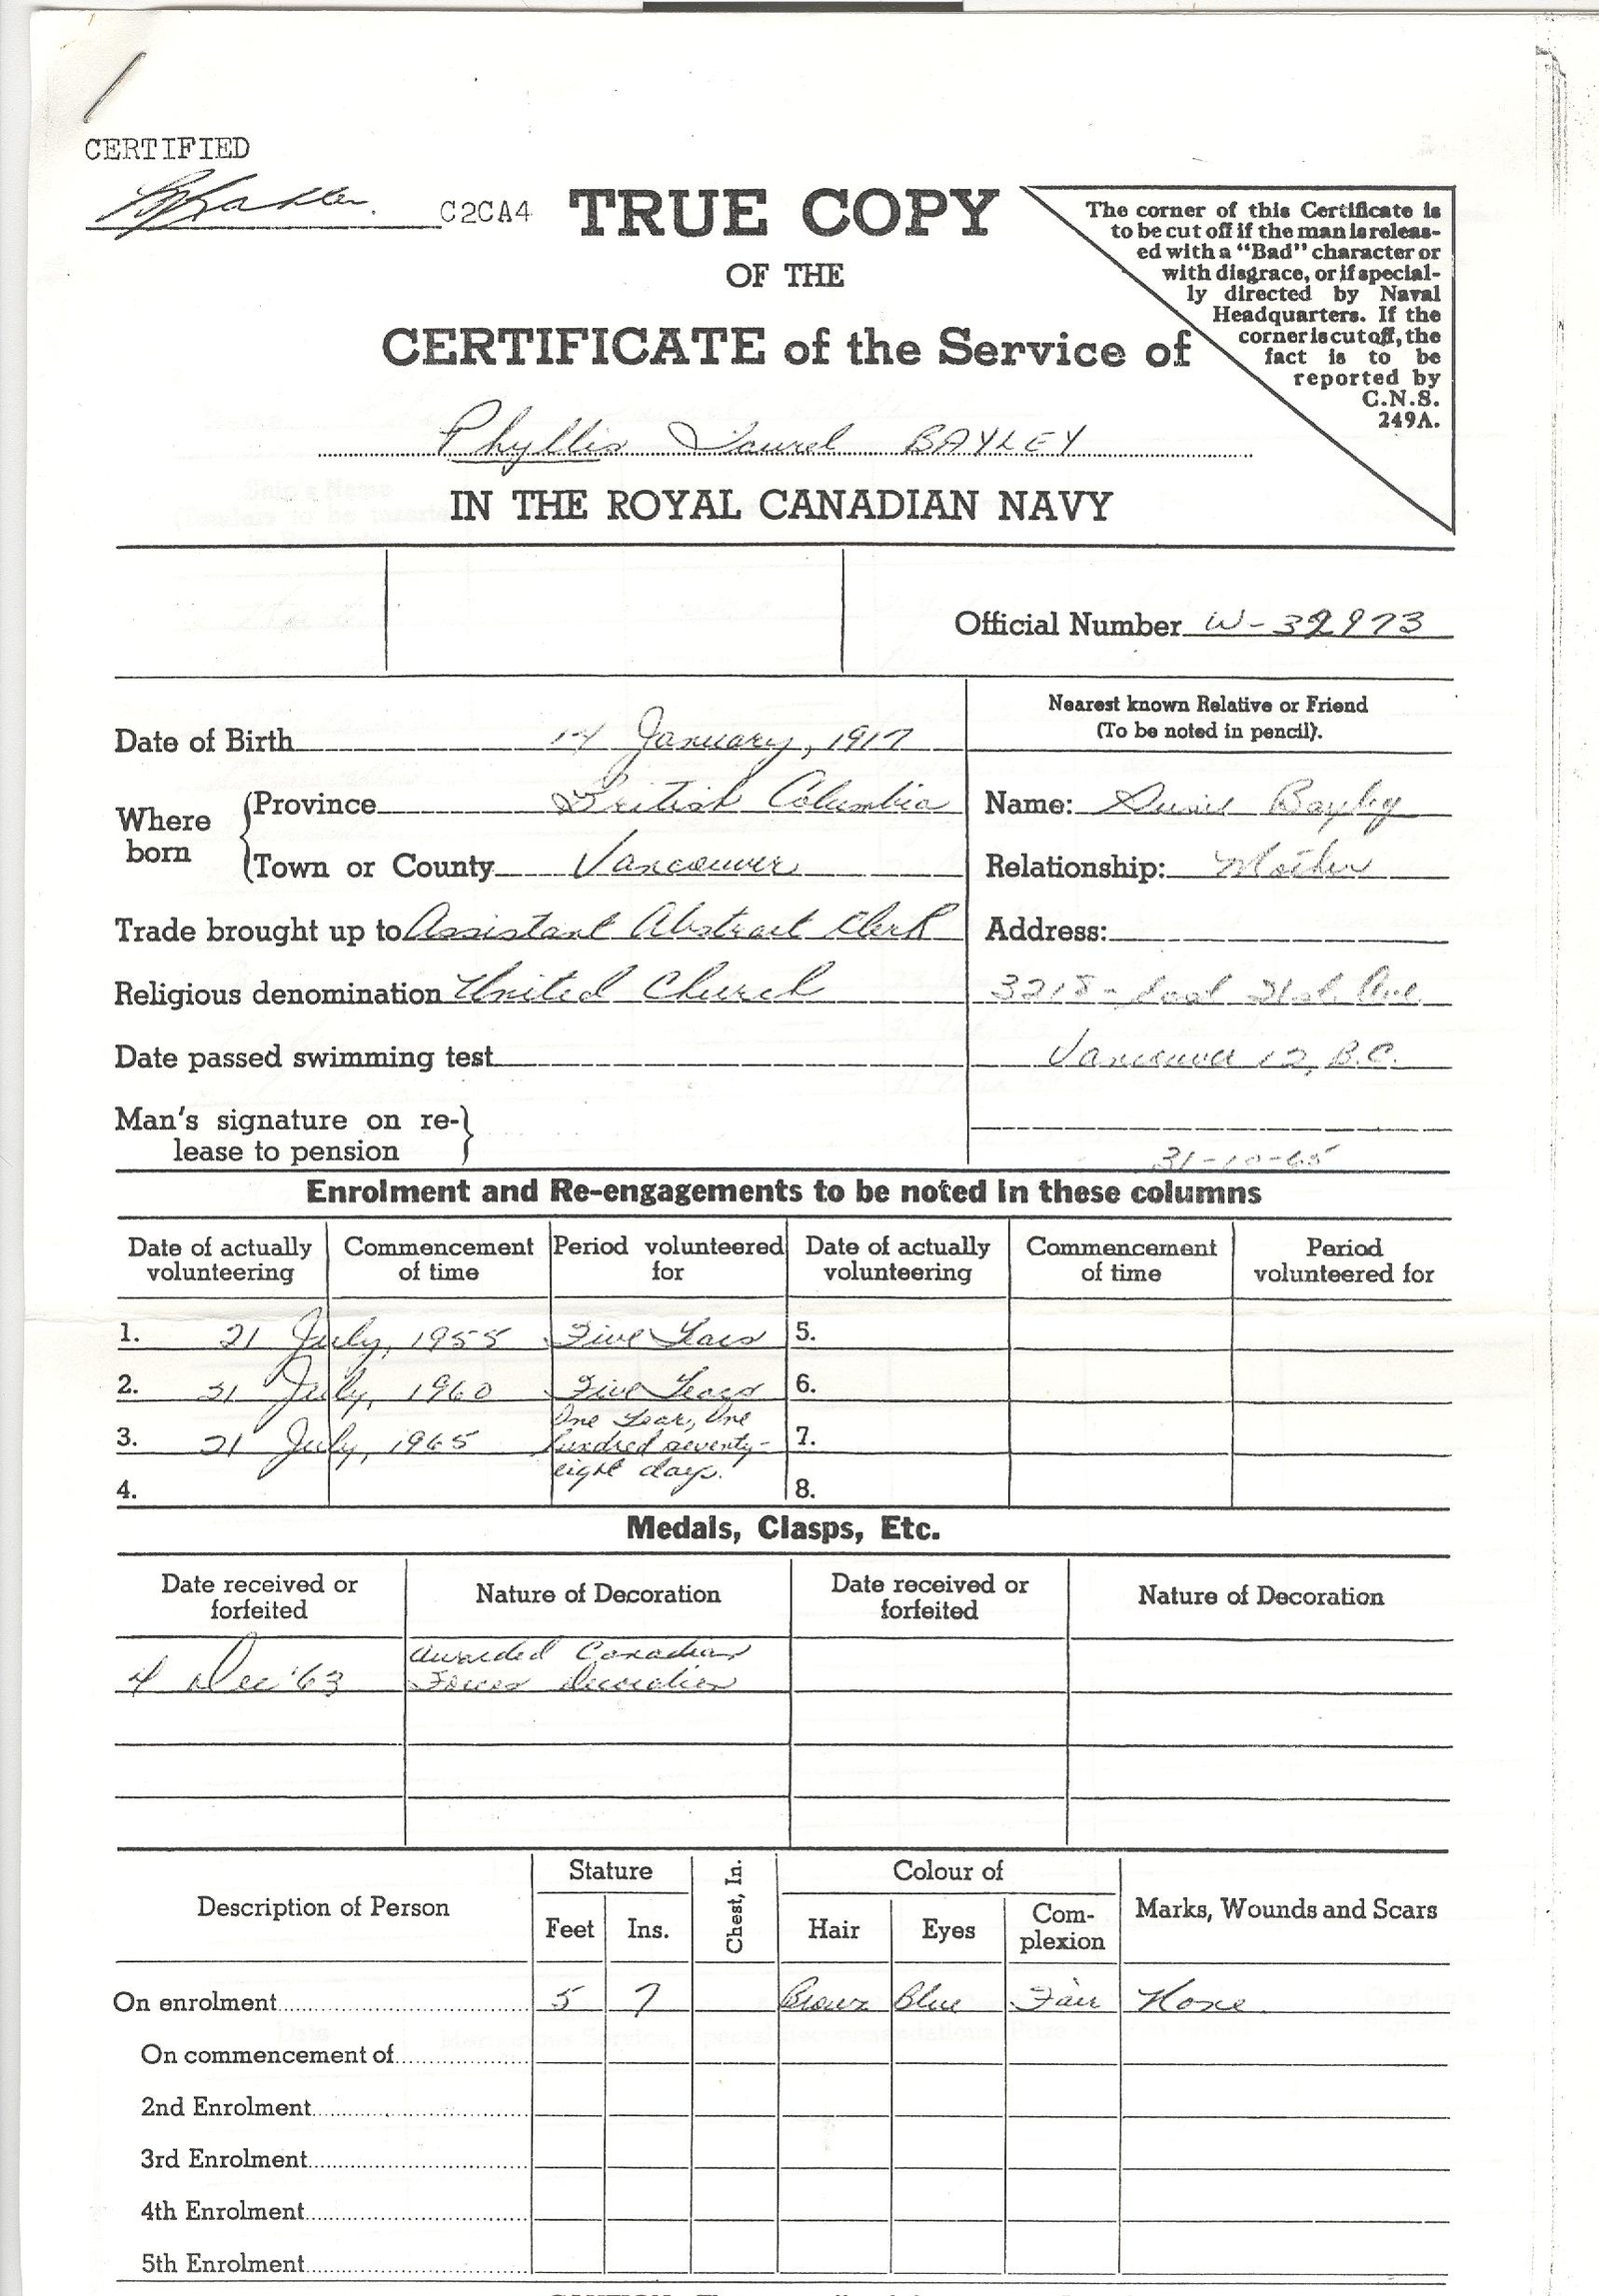 CERTIFIED
C2CA4
TRUE COPY
OF THE
CERTIFICATE of the Service of
The corner of this Certificate is
to be cut off if the man is releas-
ed with a "Bad" character or
with disgrace, or if special-
ly directed by Naval
Headquarters. If the
corner is cut off, the
fact is to be
reported by
C.N.S.
249A.
Phyllis Laurel BAYLEY
IN THE ROYAL CANADIAN NAVY
Official Number W-32973
Nearest known Relative or Friend
(To be noted in pencil).
Date of Birth 14 January, 1917
Where born
Province British Columbia
Name: Bayley
Town or County Vancouver
Relationship: Mother
Trade brought up to Assistant Abstract Clerk
Address:
Religious denomination United Church
3218 - East 21st. Ave.
Date passed swimming test
Vancouver 12, B.C.
Man's signature on re-
lease to pension
31-10-65
Enrolment and Re-engagements to be noted in these columns
Date of actually volunteering Commencement of time Period volunteered for Date of actually volunteering Commencement of time Period volunteered for
1. 21 July, 1955 Five Years 5.
2. 21 July, 1960 Five Years 6.
3. 21 July, 1965 One Year, One hundred seventy-eight days. 7.
4. 8.
Medals, Clasps, Etc.
Date received or forfeited Nature of Decoration Date received or forfeited Nature of Decoration
4 Dec '63 Awarded Canadian Forces Decoration
Description of Person Stature Chest, In. Colour of Marks, Wounds and Scars
Feet Ins. Hair Eyes Com-plexion
On enrolment 5 7 Brown Blue Fair None
On commencement of
2nd Enrolment
3rd Enrolment
4th Enrolment
5th Enrolment